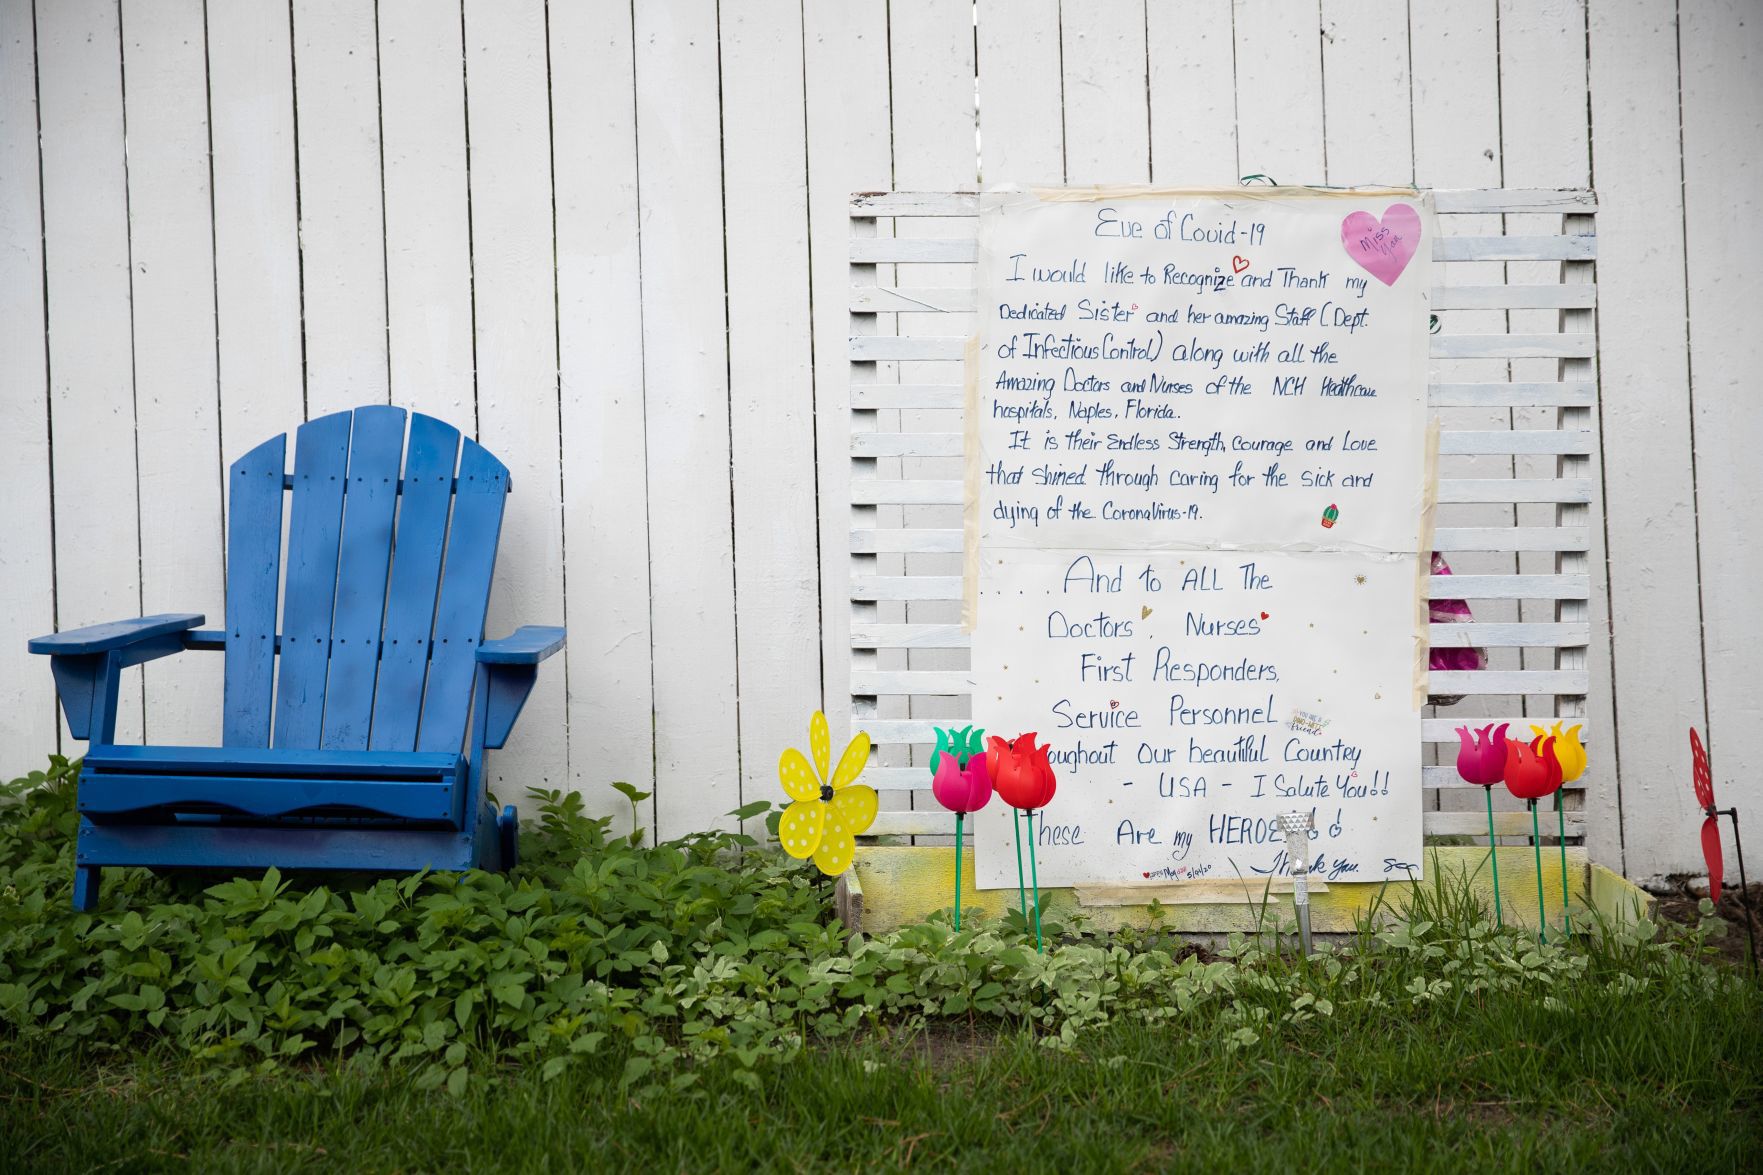 Eve of Covid-19
Miss
You
I would like to Recognize and Thank my
Dedicated Sister and her amazing Staff (Dept.
of Infectious Control) along with all the
Amazing Doctors and Nurses of the NCH Healthcare
hospitals, Naples, Florida.
It is their Endless Strength, Courage and Love
that shined through caring for the sick and
dying of the CoronaVirus-19.
.... And to ALL The
Doctors, Nurses
First Responders,
Service Personnel
YOU ARE A
friend
oughout our beautiful Country
- USA - I Salute You!!
hese Are my HEROE
Thank You.
5/01/20